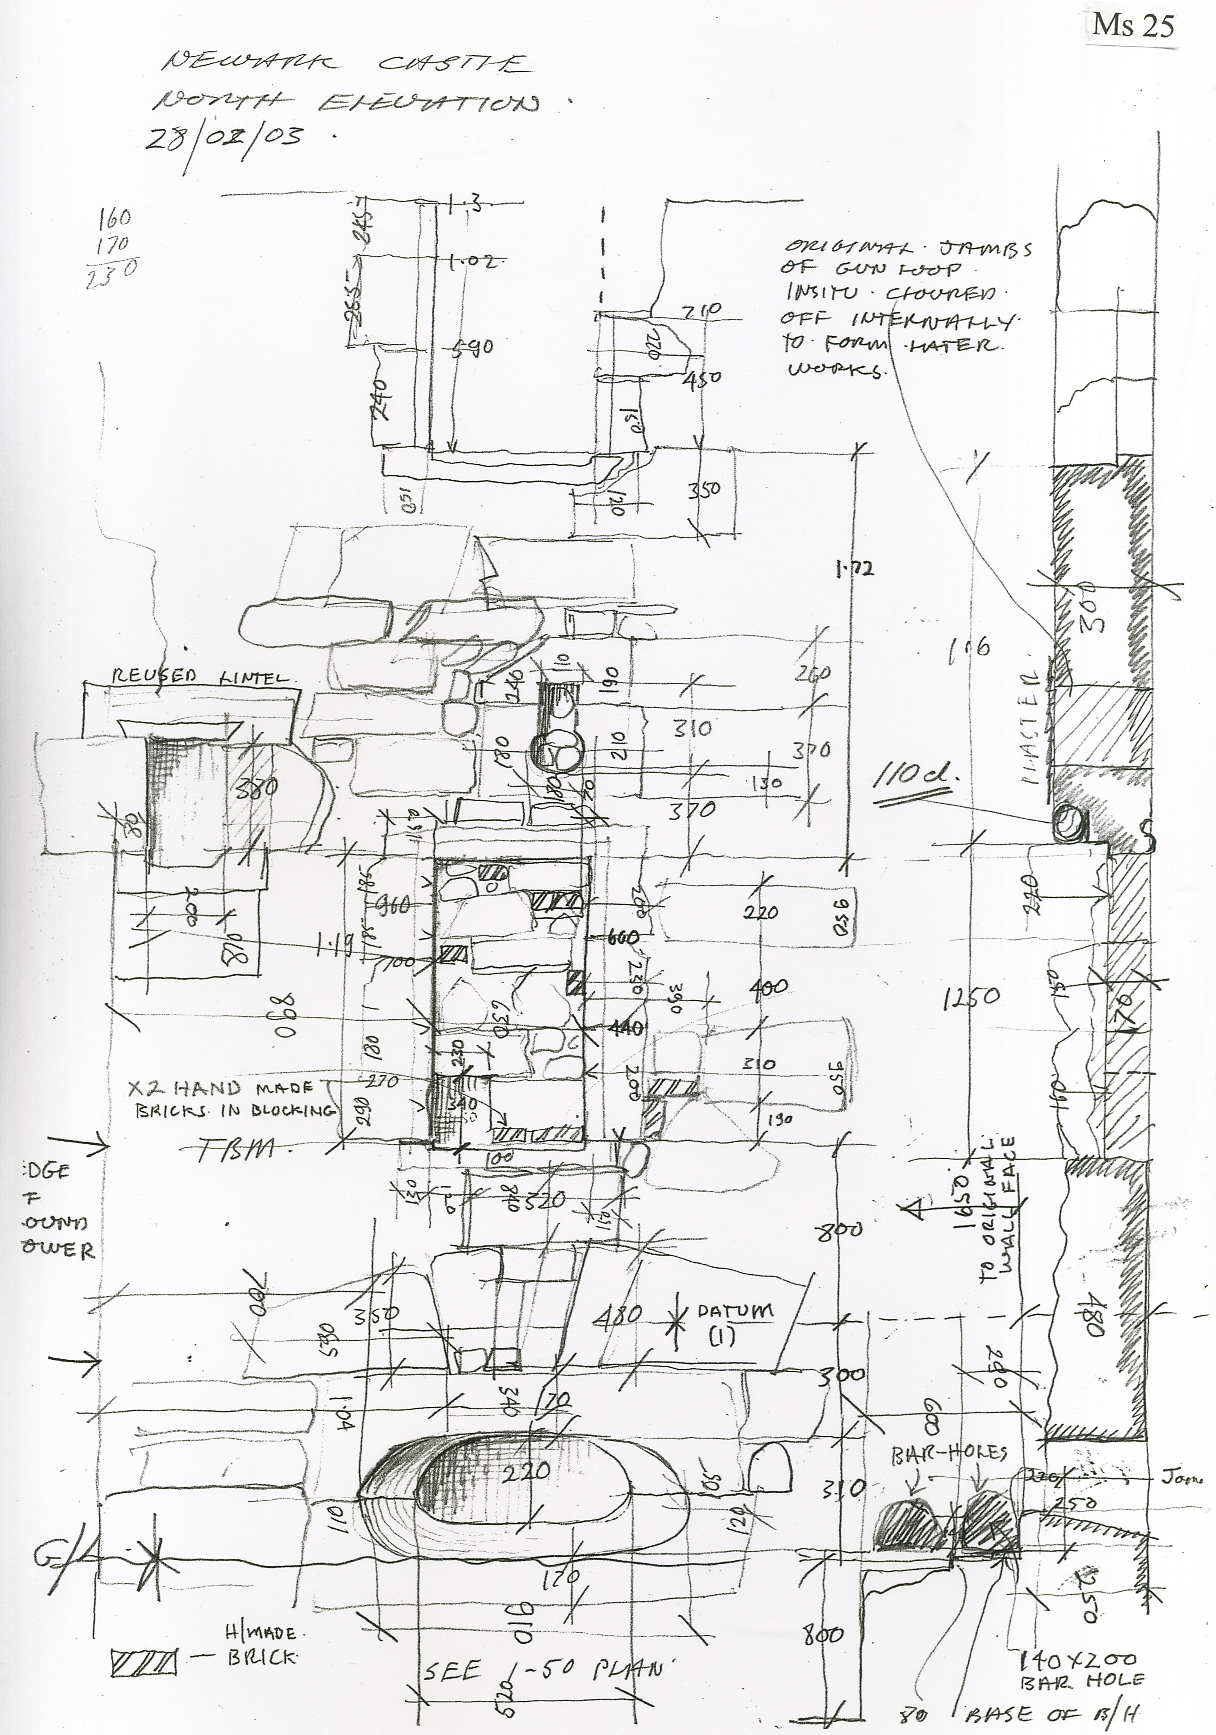 Ms 25
NEWARK CASTLE
NORTH ELEVATION.
28/02/03.
160
170
230
245
1.3
1.02
265
590
240
210
220
450
150
ORIGINAL JAMBS
OF GUN LOOP
INSITU. CLOURED.
OFF INTERNALLY
TO FORM LATER
WORKS.
150
120
350
1.72
1.16
300
PLASTER
REUSED LINTEL
240
110
190
260
310
370
180
210
130
370
110d.
380
80
200
185
960
1.19
185
100
600
220
950
270
230
390
400
1250
150
170
690
630
440
180
230
270
310
950
200
290
340
190
160
X2 HAND MADE
BRICKS. IN BLOCKING
TBM.
100
520
150
800
1650
TO ORIGINAL
WALL FACE
DGE
F
OUND
OWER
700
350
530
480
DATUM
(1)
480
300
290
1.04
340
170
600
BAR-HOLES
220
50
310
220
250
110
120
G/L
170
250
910
800
H/MADE
BRICK
SEE 1-50 PLAN
520
140X200
BAR HOLE
80
BASE OF B/H